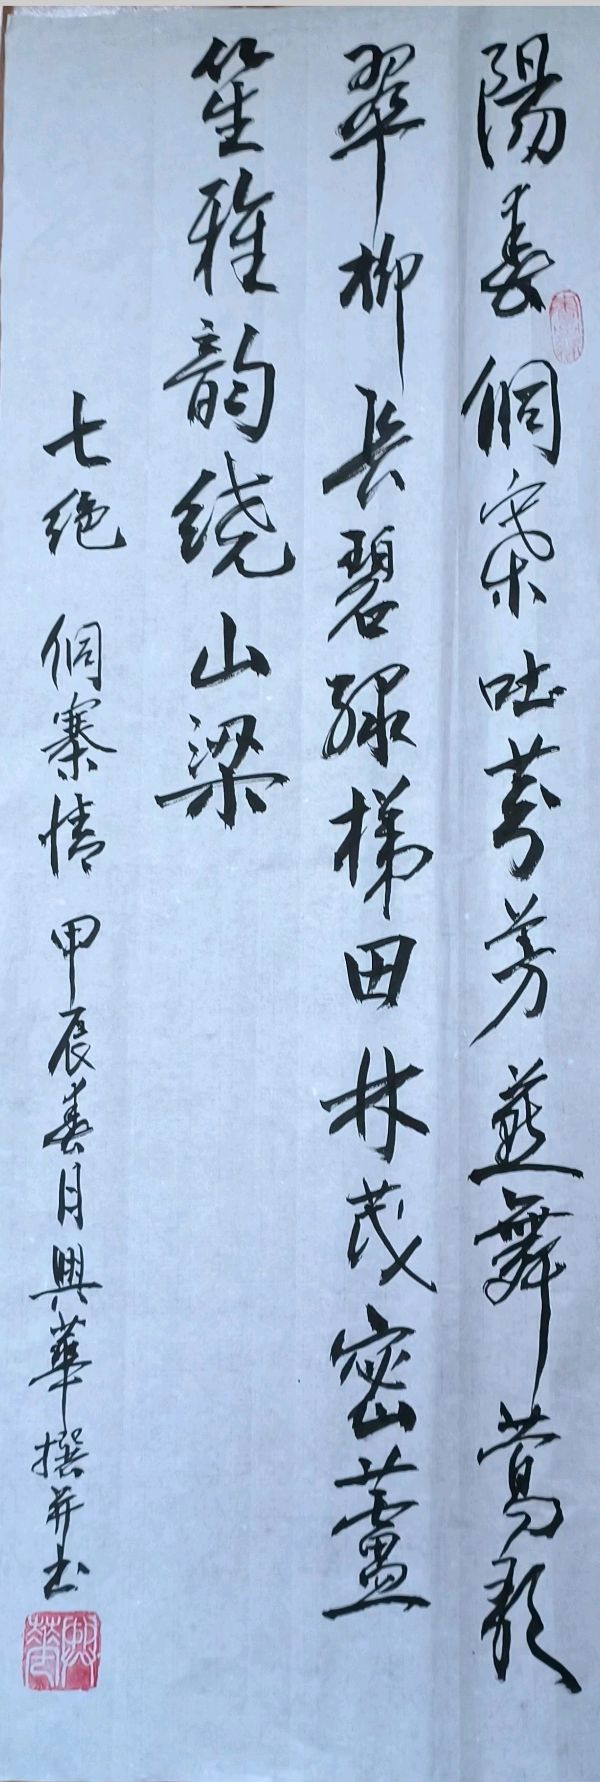 陽春侗寨吐芬芳燕舞莺歌
翠柳長碧绿梯田林茂密蘆
笙雅韵绕山梁
七绝 侗寨情 甲辰春月興華撰并书
興華